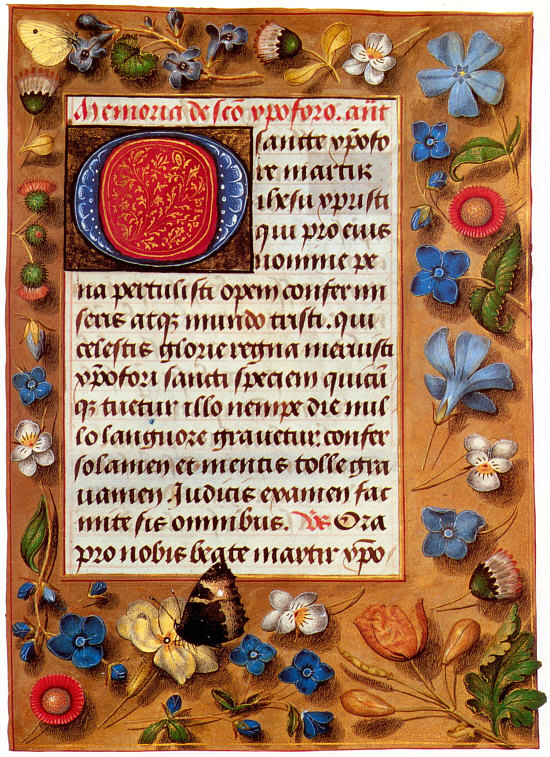 Memoria de sco xpoforo. ant
O Sancte xpofo
re martir
ihesu xpristi
qui pro eius
nomine pe
na pertulisti opem confer mi
seris atq; mundo tristi. qui
celestis glorie regna meruisti
xpofori sancti speciem quicu
q; tuetur illo nempe die nul
lo languore grauetur. confer
solamen et mentis tolle gra
uamen. Iudicis examen fac
mite sis omnibus. Vs Ora
pro nobis beate martir xpo